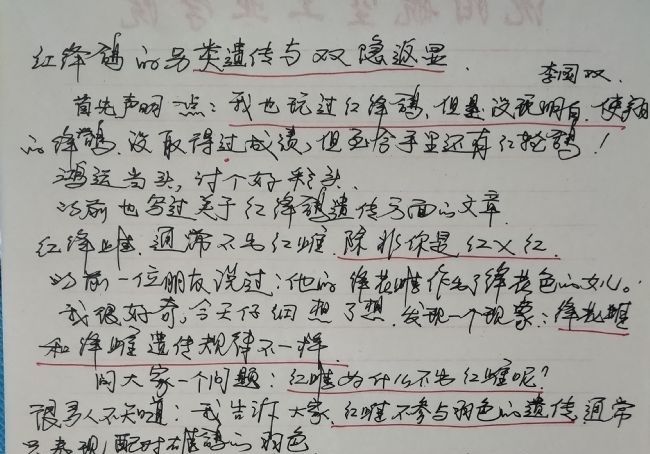 沈阳航空工业学院
红绛鸽的另类遗传与双隐返显
李国双.
首先声明一点：我也玩过红绛鸽，但是没玩明白，使
的绛鹊，没取得过成绩，但至今手里还有红轮鸽！
鸿运当头，讨个好彩头．
以前也写过关于红绛鸽遗传方面的文章．
红绛雌，通常不出红雌．除非你是红X红．
以前一位朋友说过：他的绛花雌作出了绛花色的女儿。
我很好奇，今天仔细想了想，发现一个现象：绛花雌
和绛雌遗传规律不一样．
问大家一个问题：红雌为什么不出红雌呢？
很多人不知道：我告诉大家，红雌不参与羽色的遗传，通常
只表现，配对雄鸽的羽色